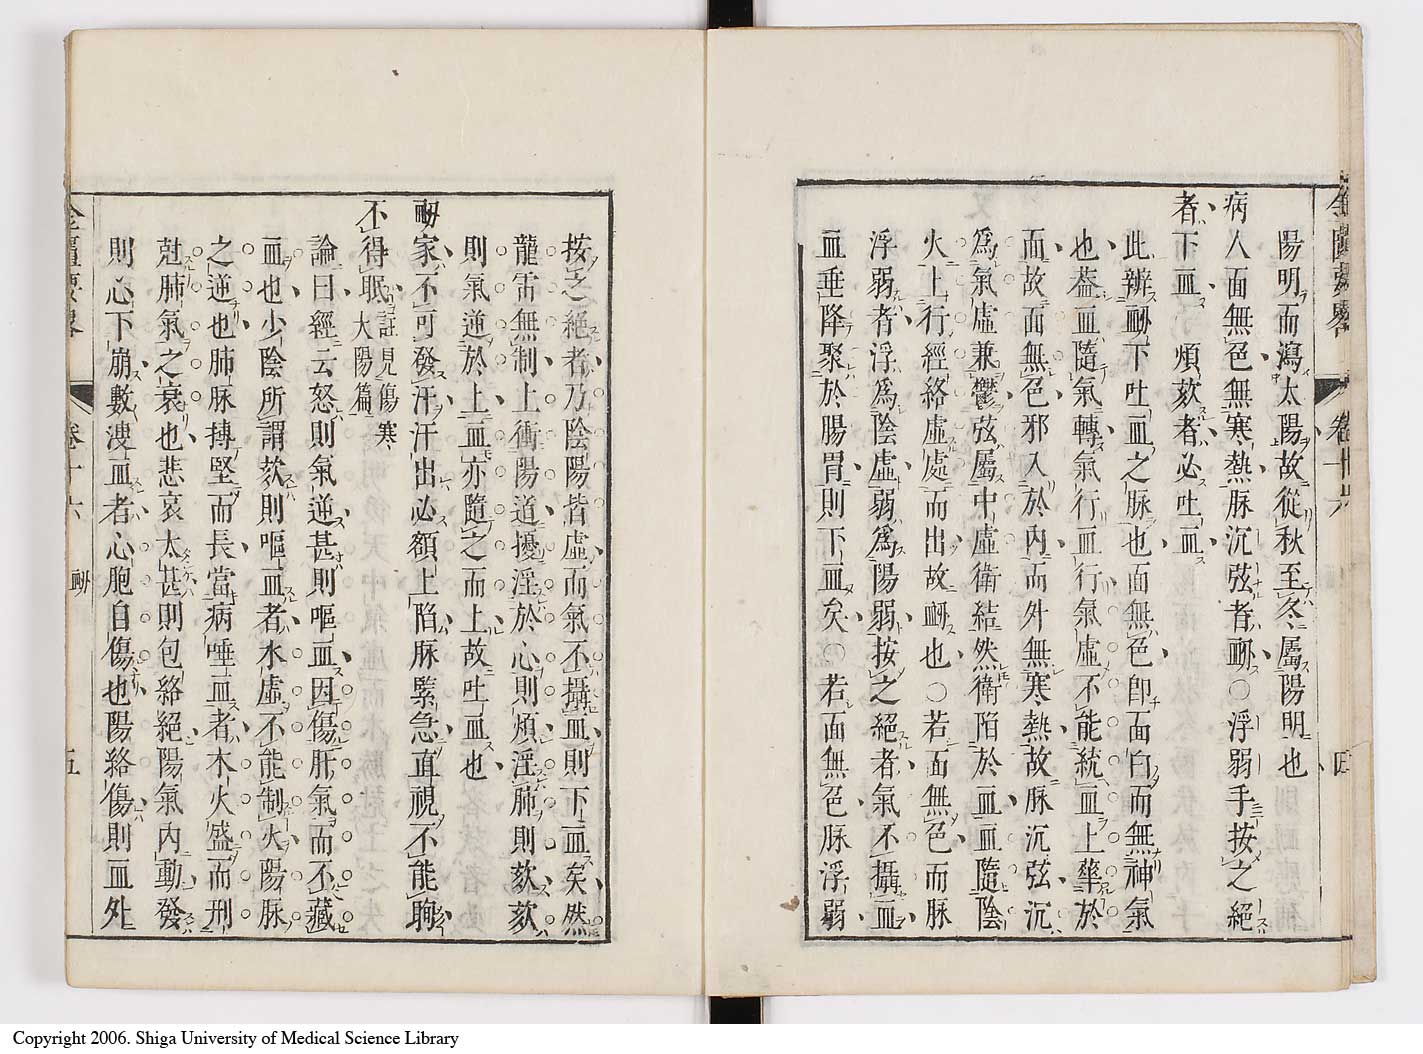 陽明而瀉太陽故從秋至冬屬陽明也
病人面無色無寒熱脉沉弦者衂○浮弱手按之絕
者下血煩欬者必吐血
此辨衂下吐血之脉也面無色即面白而無神氣
也葢血隨氣轉氣行血行氣虛不能統血上華於
面故面無色邪入於內而外無寒熱故脉沉弦沉
爲氣虛兼鬱弦屬中虛衛結然衛陷於血血隨陰
火上行經絡虛處而出故衂也○若面無色而脉
浮弱者浮爲陰虛弱爲陽弱按之絕者氣不攝血
血垂降聚於腸胃則下血矣○若面無色脉浮弱
按之絕者乃陰陽皆虛而氣不攝血則下血矣然
龍雷無制上衝陽道擾淫於心則煩淫肺則欬欬
則氣逆於上血亦隨之而上故吐血也
衂家不可發汗汗出必額上陷脉緊急直視不能眴
不得眠註見傷寒太陽篇
論曰經云怒則氣逆甚則嘔血因傷肝氣而不藏
血也少陰所謂欬則嘔血者水虛不能制火陽脉
之逆也肺脉摶堅而長當病唾血者木火盛而刑
尅肺氣之衰也悲哀太甚則包絡絕陽氣內動發
則心下崩數溲血者心胞自傷也陽絡傷則血外
卷十六 衂 五